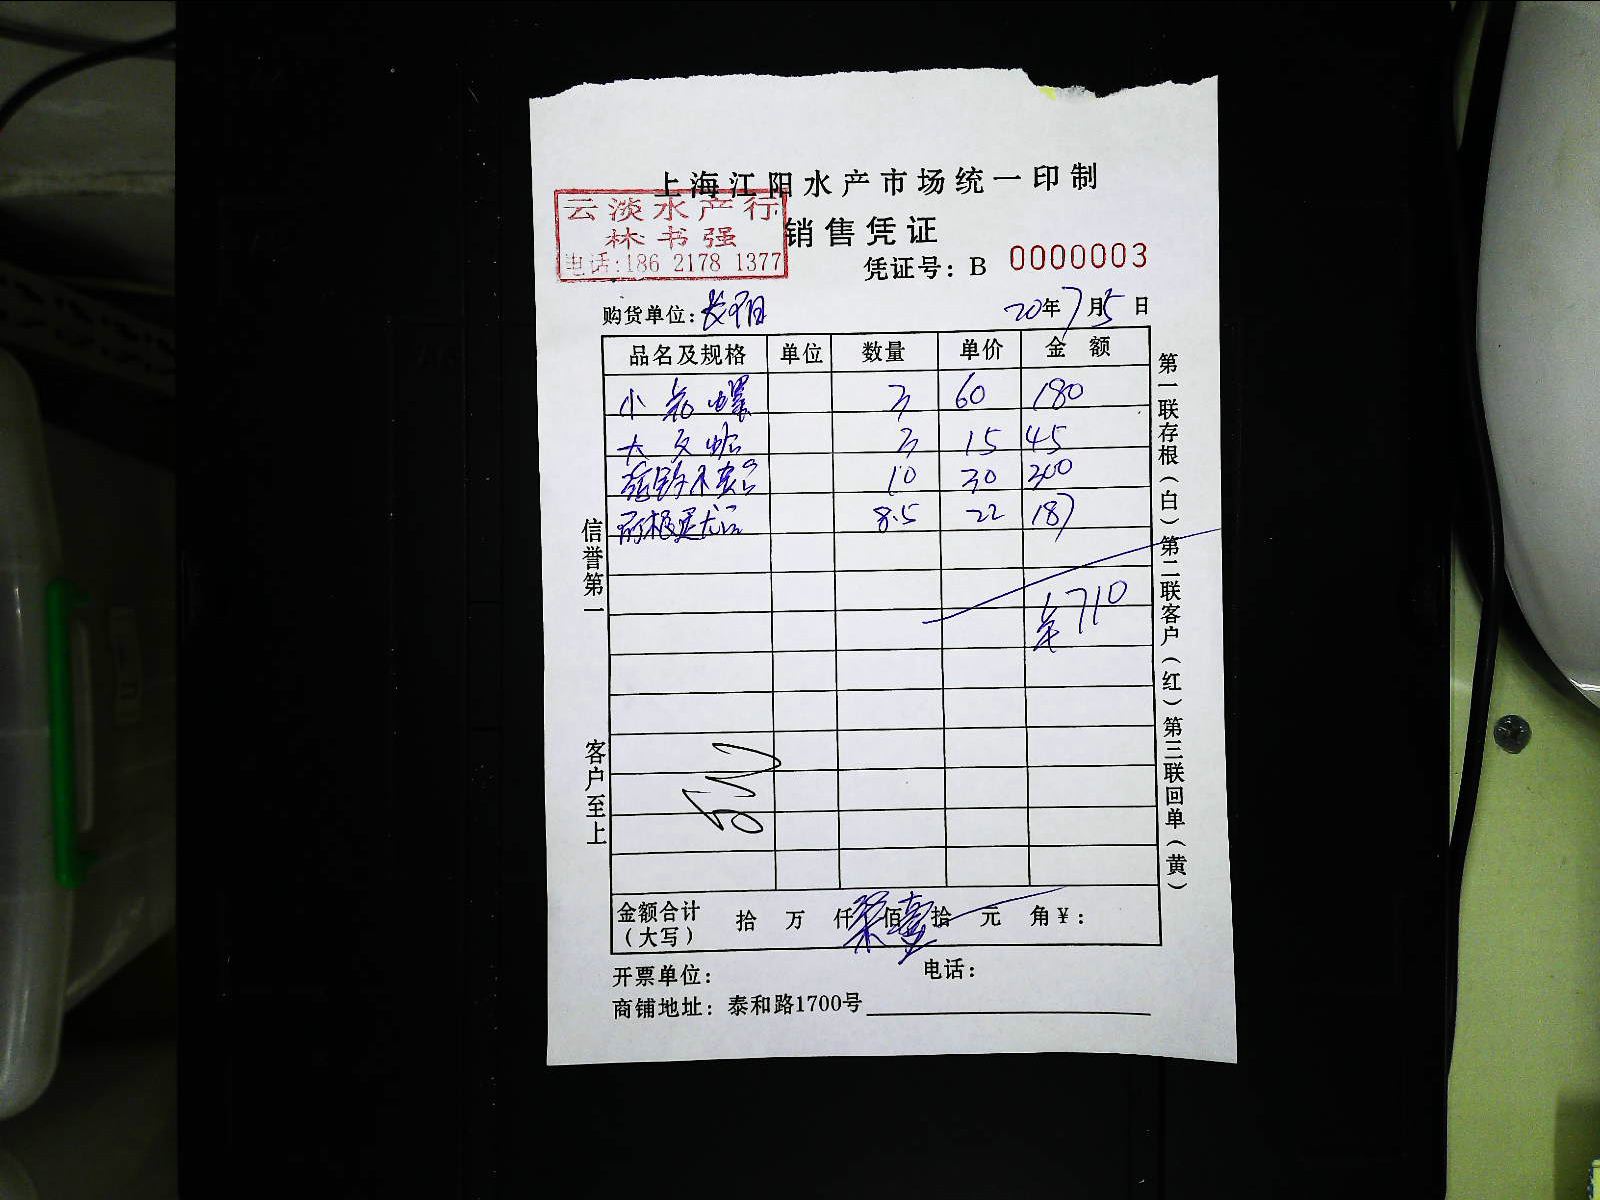 上海江阳水产市场统一印制
云淡水产行
林书强
电话:186 2178 1377
销售凭证
凭证号：B 0000003
购货单位：长阳
20年7月5日
品名及规格 单位 数量 单价 金额
小花螺 3 60 180
大文蛤 3 15 45
10 30 300
8.5 22 187
710
信誉第一
客户至上
第一联存根（白）第二联客户（红）第三联回单（黄）
金额合计（大写） 拾 万 仟 柒佰壹拾 元 角¥：
开票单位： 电话：
商铺地址：泰和路1700号